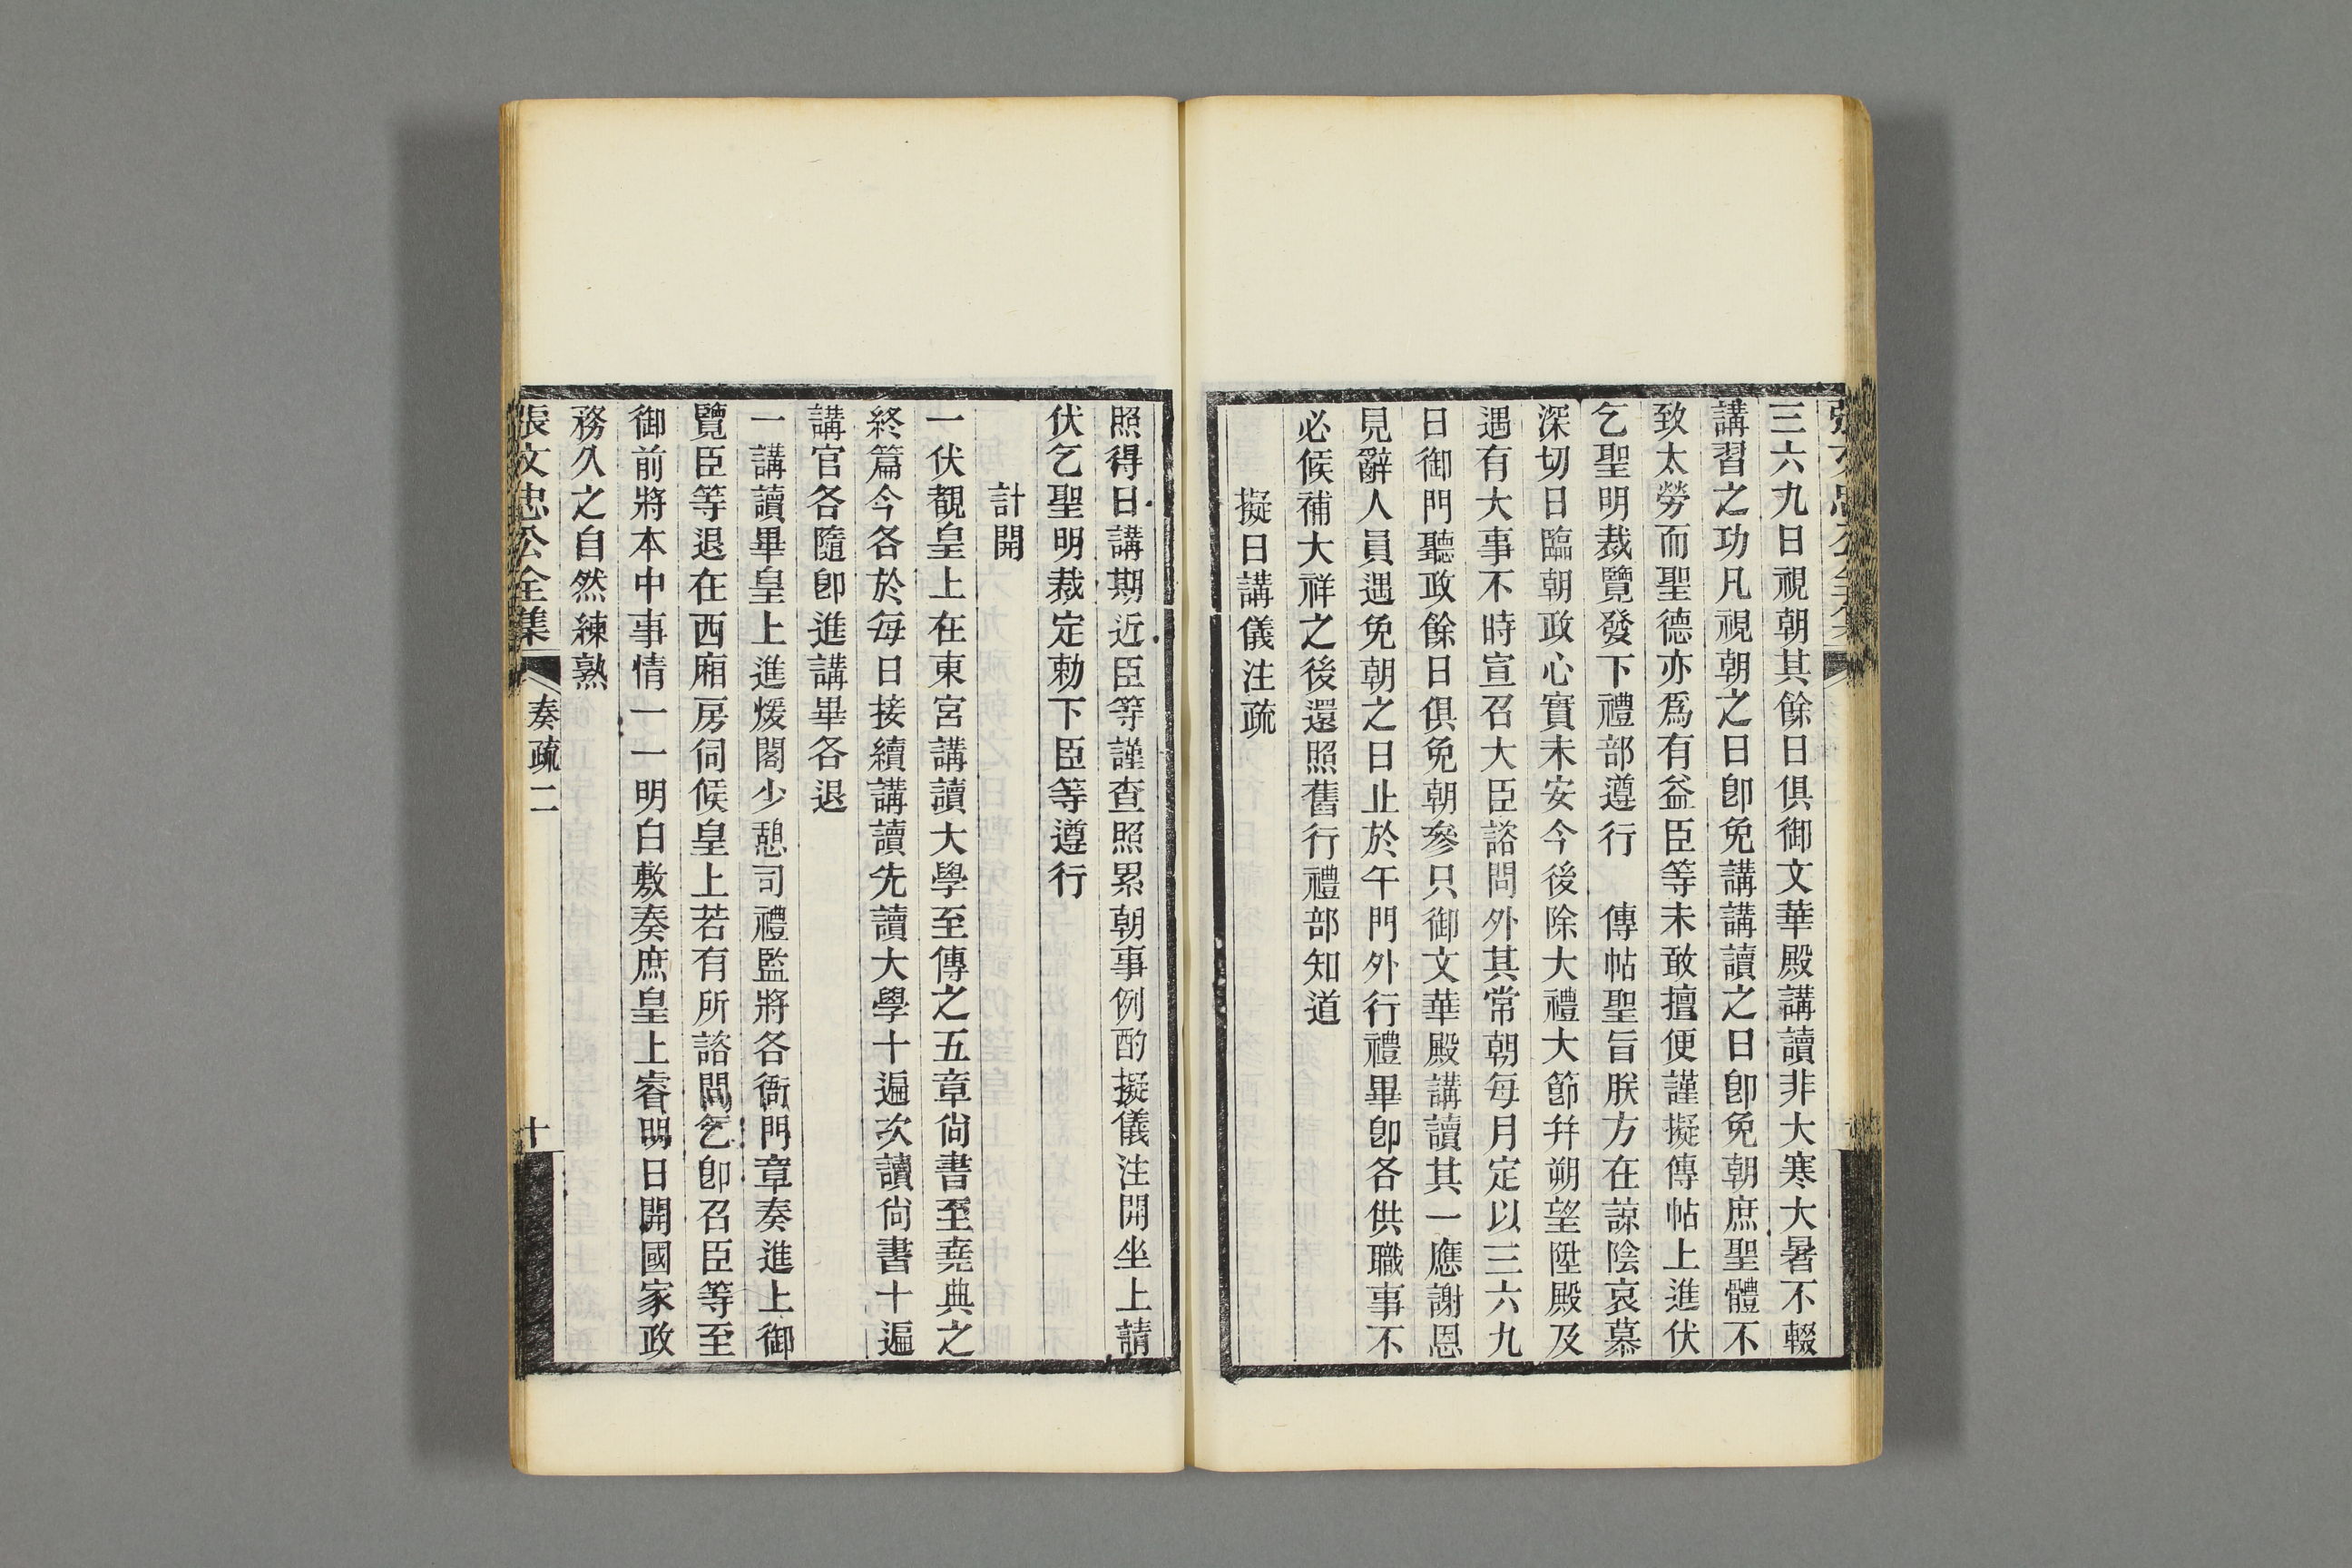 三六九日視朝其餘日俱御文華殿講讀非大寒大暑不輟
講習之功凡視朝之日卽免講講讀之日卽免朝庶聖體不
致太勞而聖德亦爲有益臣等未敢擅便謹擬傳帖上進伏
乞聖明裁覽發下禮部遵行　傳帖聖旨朕方在諒陰哀慕
深切日臨朝政心實未安今後除大禮大節幷朔望陞殿及
遇有大事不時宣召大臣諮問外其常朝每月定以三六九
日御門聽政餘日俱免朝參只御文華殿講讀其一應謝恩
見辭人員遇免朝之日止於午門外行禮畢卽各供職事不
必候補大祥之後還照舊行禮部知道
擬日講儀注疏
照得日講期近臣等謹查照累朝事例酌擬儀注開坐上請
伏乞聖明裁定勅下臣等遵行
計開
一伏覩皇上在東宮講讀大學至傳之五章尙書至堯典之
終篇今各於每日接續講讀先讀大學十遍次讀尙書十遍
講官各隨卽進講畢各退
一講讀畢皇上進煖閣少憩司禮監將各衙門章奏進上御
覽臣等退在西廂房伺候皇上若有所諮問乞卽召臣等至
御前將本中事情一一明白敷奏庶皇上睿明日開國家政
務久之自然練熟
張文忠公全集　奏疏二　十